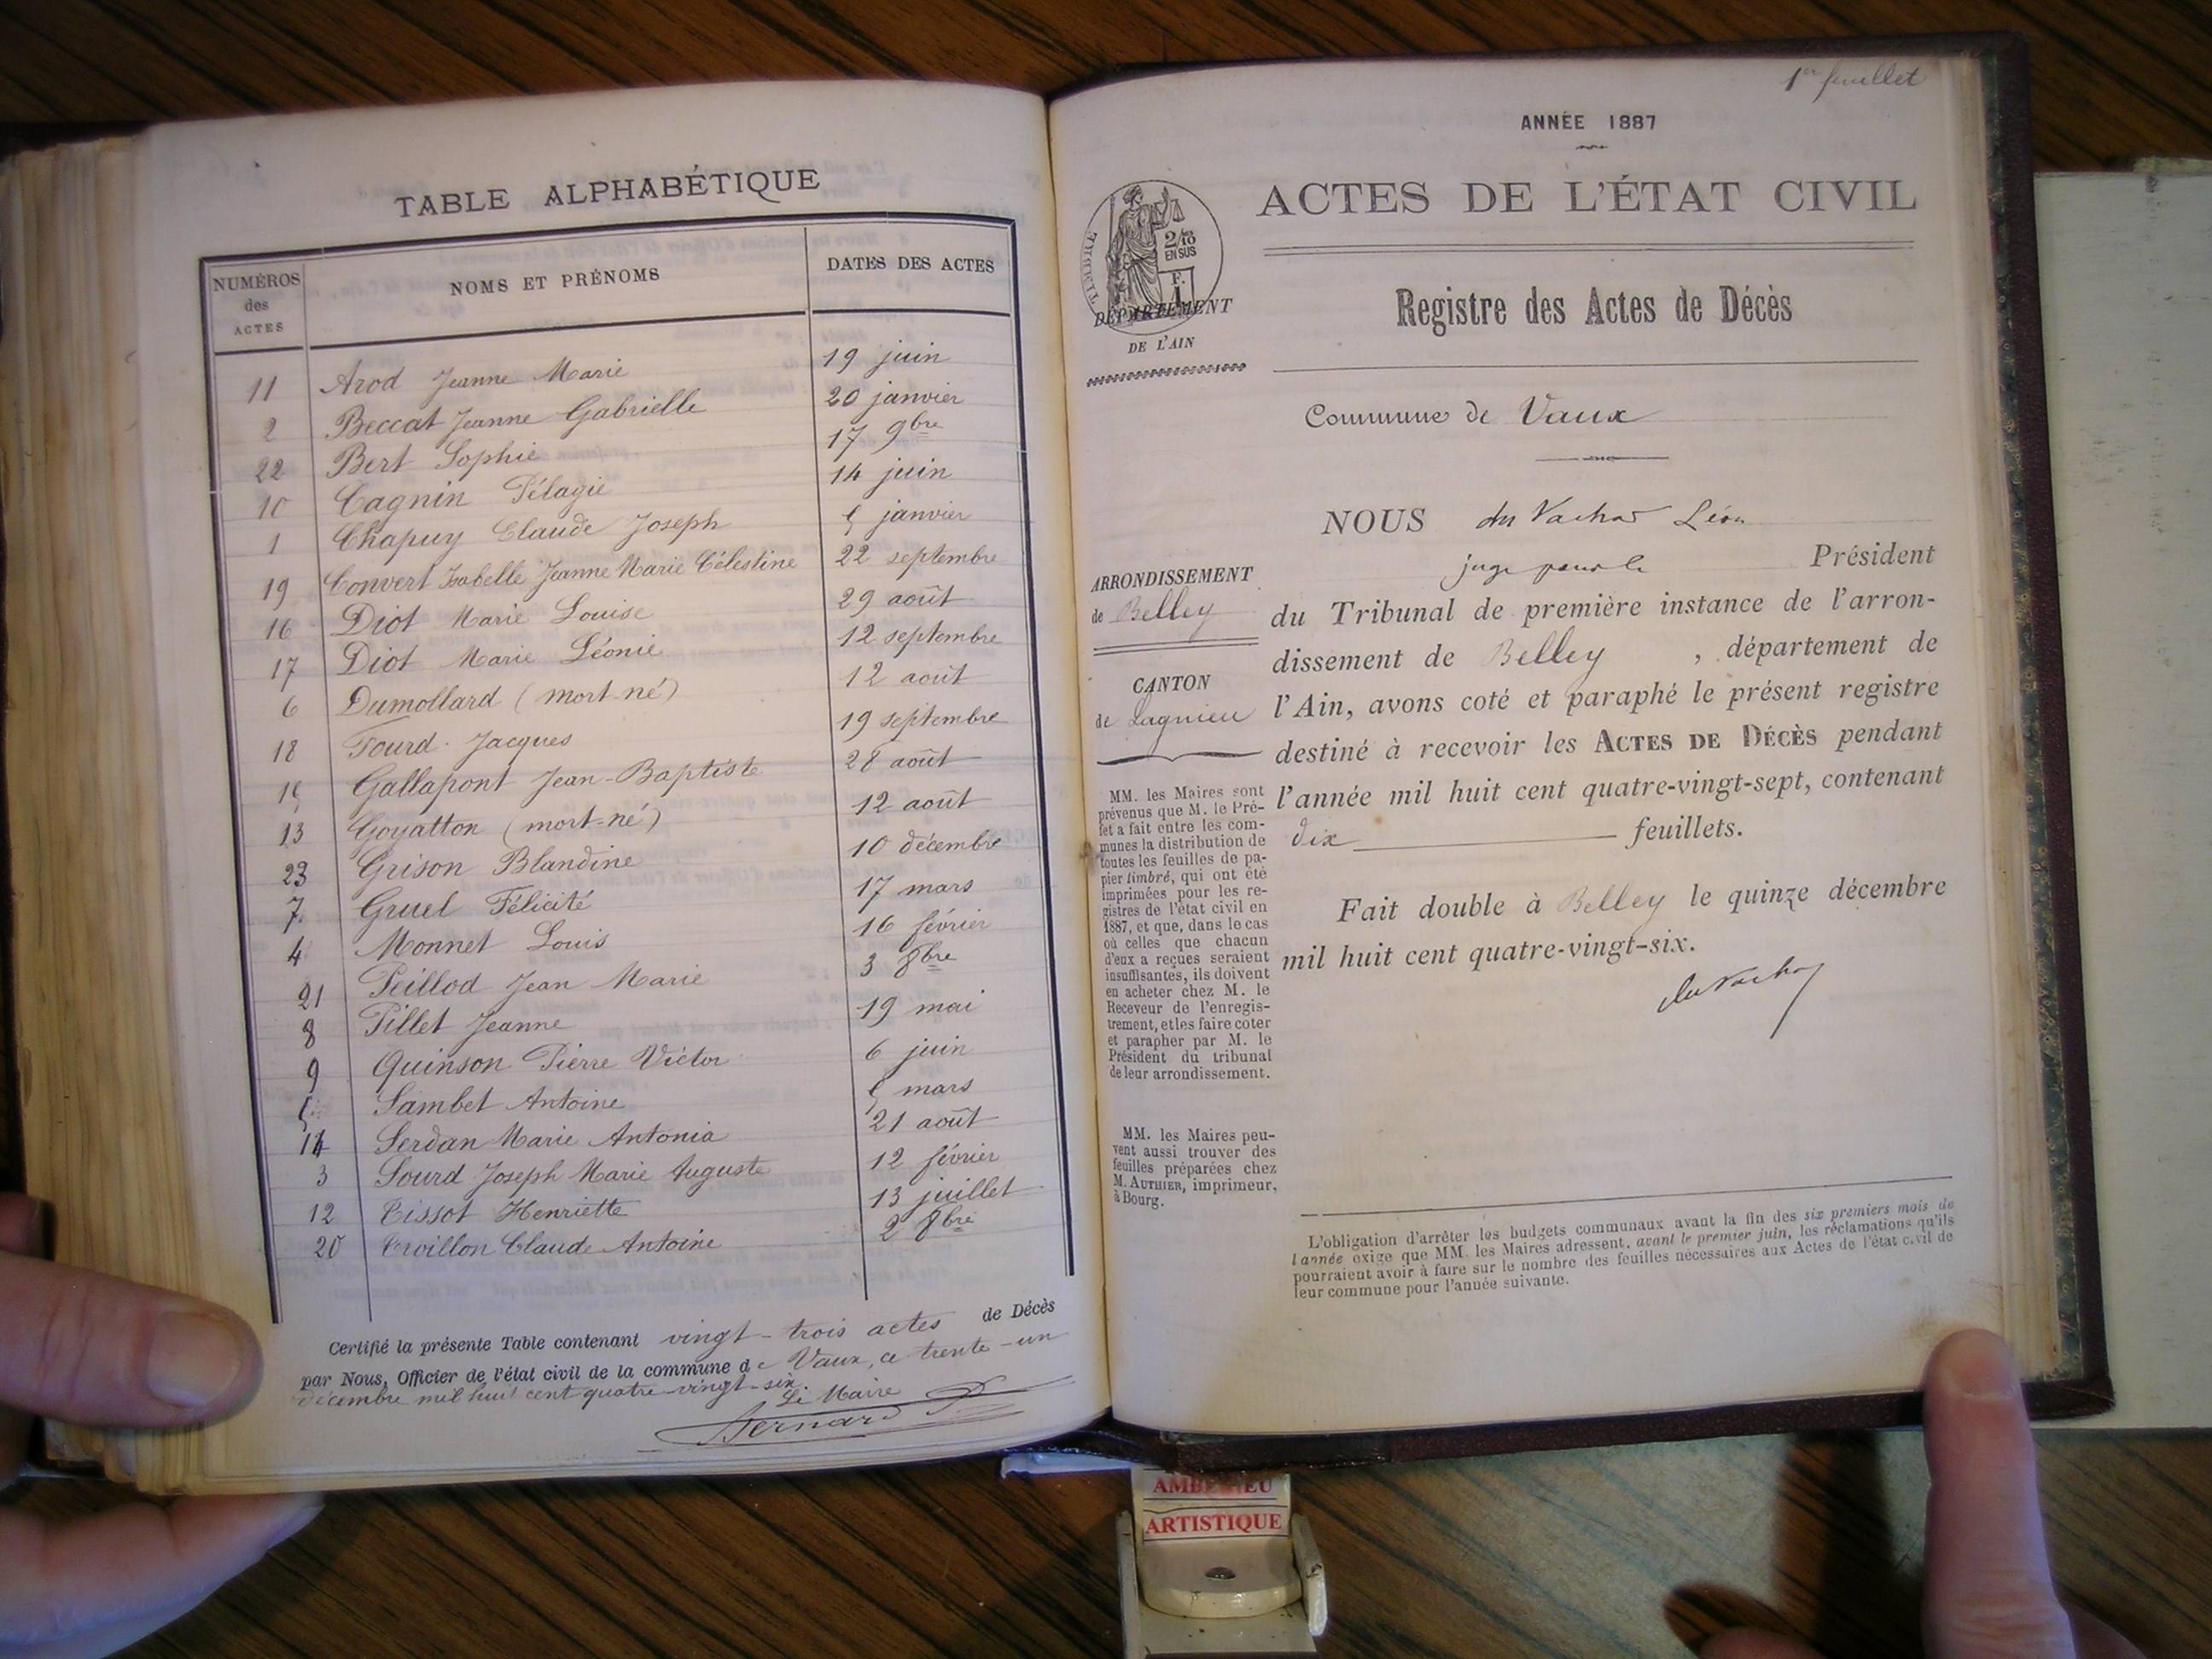 TABLE ALPHABÉTIQUE
NUMÉROS des ACTES NOMS ET PRÉNOMS DATES DES ACTES
11 Arod Jeanne Marie 19 juin
2 Beccat Jeanne Gabrielle 20 janvier
22 Bert Sophie 17 9bre
10 Cagnin Pélagie 14 juin
1 Chapuy Claude Joseph 5 janvier
19 Convert Isabelle Jeanne Marie Célestine 22 septembre
16 Diot Marie Louise 29 août
17 Diot Marie Léonie 12 septembre
6 Dumollard (mort-né) 12 août
18 Fourd Jacques 19 septembre
15 Gallapont Jean-Baptiste 28 août
13 Goyatton (mort-né) 12 août
23 Grison Blandine 10 décembre
7 Gruel Félicité 17 mars
4 Monnet Louis 16 février
21 Peillod Jean Marie 3 8bre
8 Pillet Jeanne 19 mai
9 Quinson Pierre Victor 6 juin
5 Sambet Antoine 5 mars
14 Serdan Marie Antonia 21 août
3 Sourd Joseph Marie Auguste 12 février
12 Tissot Henriette 13 juillet
20 Troillon Claude Antoine 2 8bre
Certifié la présente Table contenant vingt-trois actes de Décès
par Nous, Officier de l'état civil de la commune de Vaux, ce trente-un
décembre mil huit cent quatre-vingt-six.
Le Maire
Bernard
1er feuillet
ANNÉE 1887
ACTES DE L'ÉTAT CIVIL
TIMBRE
2/10
EN SUS
F.
1
DÉPARTEMENT
DE L'AIN
Registre des Actes de Décès
Commune de Vaux
ARRONDISSEMENT
de Belley
CANTON
de Lagnieu
MM. les Maires sont
prévenus que M. le Pré-
fet a fait entre les com-
munes la distribution de
toutes les feuilles de pa-
pier timbré, qui ont été
imprimées pour les re-
gistres de l'état civil en
1887, et que, dans le cas
où celles que chacun
d'eux a reçues seraient
insuffisantes, ils doivent
en acheter chez M. le
Receveur de l'enregis-
trement, et les faire coter
et parapher par M. le
Président du tribunal
de leur arrondissement.
MM. les Maires peu-
vent aussi trouver des
feuilles préparées chez
M. AUTHIER, imprimeur,
à Bourg.
NOUS du Vachat Léon
juge pour le Président
du Tribunal de première instance de l'arron-
dissement de Belley , département de
l'Ain, avons coté et paraphé le présent registre
destiné à recevoir les ACTES DE DÉCÈS pendant
l'année mil huit cent quatre-vingt-sept, contenant
dix feuillets.
Fait double à Belley le quinze décembre
mil huit cent quatre-vingt-six.
du Vachat
L'obligation d'arrêter les budgets communaux avant la fin des six premiers mois de
l'année exige que MM. les Maires adressent, avant le premier juin, les réclamations qu'ils
pourraient avoir à faire sur le nombre des feuilles nécessaires aux Actes de l'état civil de
leur commune pour l'année suivante.
AMBERIEU
ARTISTIQUE